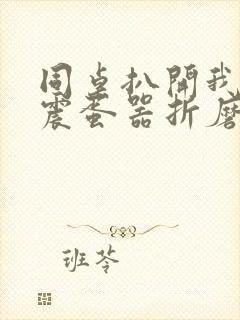 同桌扒開我
震蛋器折磨
班苓